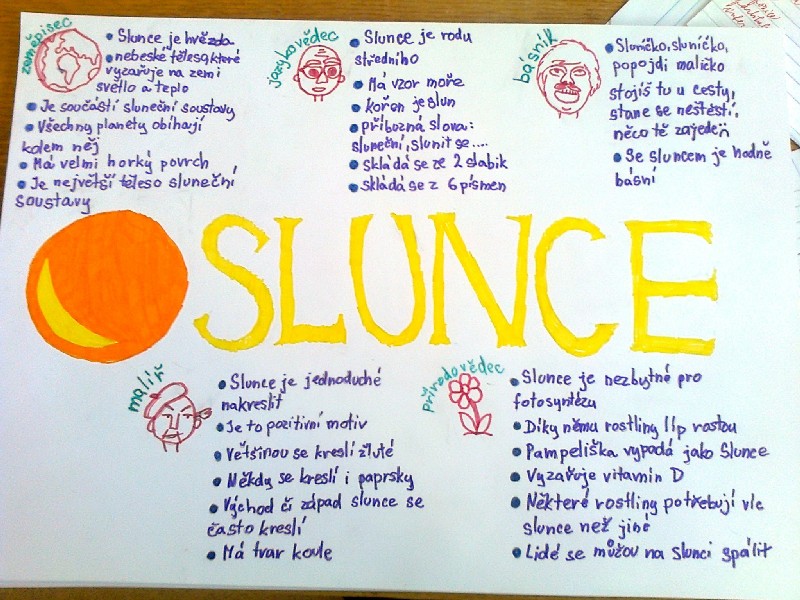 zeměpisec
Slunce je hvězda
nebeské těleso, které
vyzařuje na zemi
světlo a teplo
Je součástí sluneční soustavy
Všechny planety obíhají
kolem něj
Má velmi horký povrch
Je největší těleso sluneční
soustavy
jazykovědec
Slunce je rodu
středního
Má vzor moře
Kořen je slun
příbuzná slova:
sluneční, slunit se....
skládá se ze 2 slabik
skládá se z 6 písmen
básník
Sluníčko, sluníčko,
popojdi maličko
stojíš tu u cesty,
stane se neštěstí,
něco tě zajede!!
Se sluncem je hodně
básní
SLUNCE
malíř
Slunce je jednoduché
nakreslit
Je to pozitivní motiv
Většinou se kreslí žlutě
Někdy se kreslí i paprsky
Východ či západ slunce se
často kreslí
Má tvar koule
přírodovědec
Slunce je nezbytné pro
fotosyntézu
Díky němu rostliny líp rostou
Pampeliška vypadá jako Slunce
Vyzařuje vitamín D
Některé rostliny potřebují víc
slunce než jiné
Lidé se můžou na slunci spálit